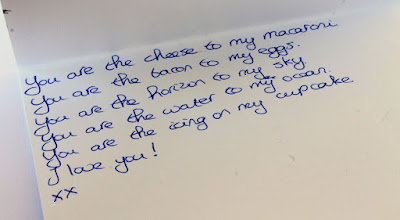 You are the cheese to my macaroni
You are the bacon to my eggs.
You are the horizon to my sky
You are the water to my ocean.
You are the icing on my cupcake
I love you!
xx